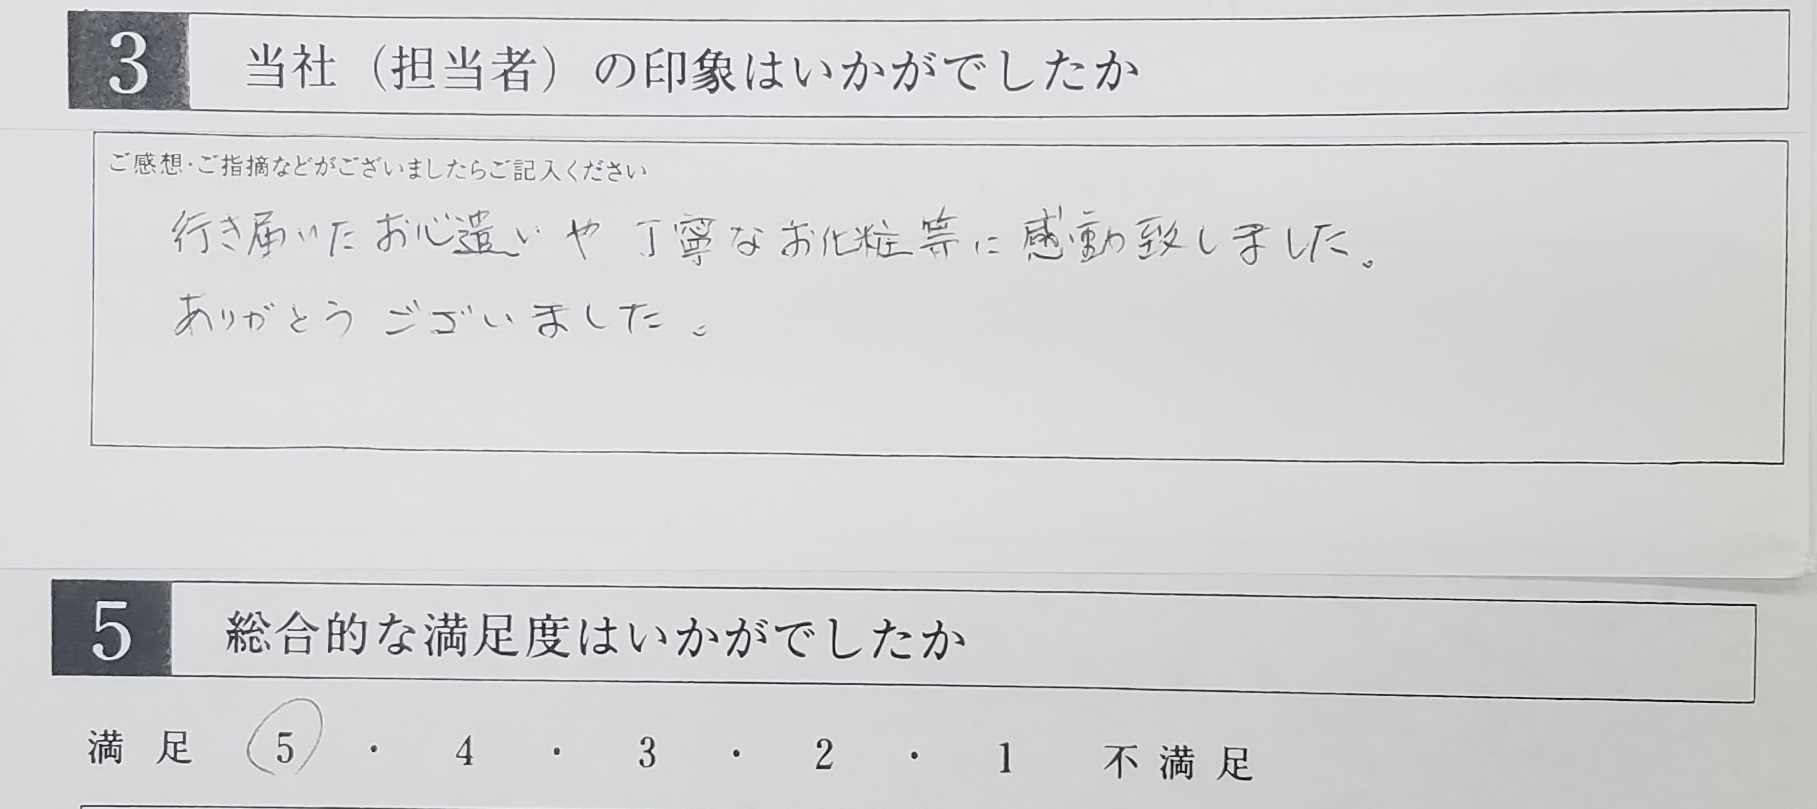 3 当社（担当者）の印象はいかがでしたか
ご感想・ご指摘などがございましたらご記入ください
行き届いたお心遣いや丁寧なお化粧等に感動致しました。
ありがとうございました。
5 総合的な満足度はいかがでしたか
満足 5 ・ 4 ・ 3 ・ 2 ・ 1 不満足